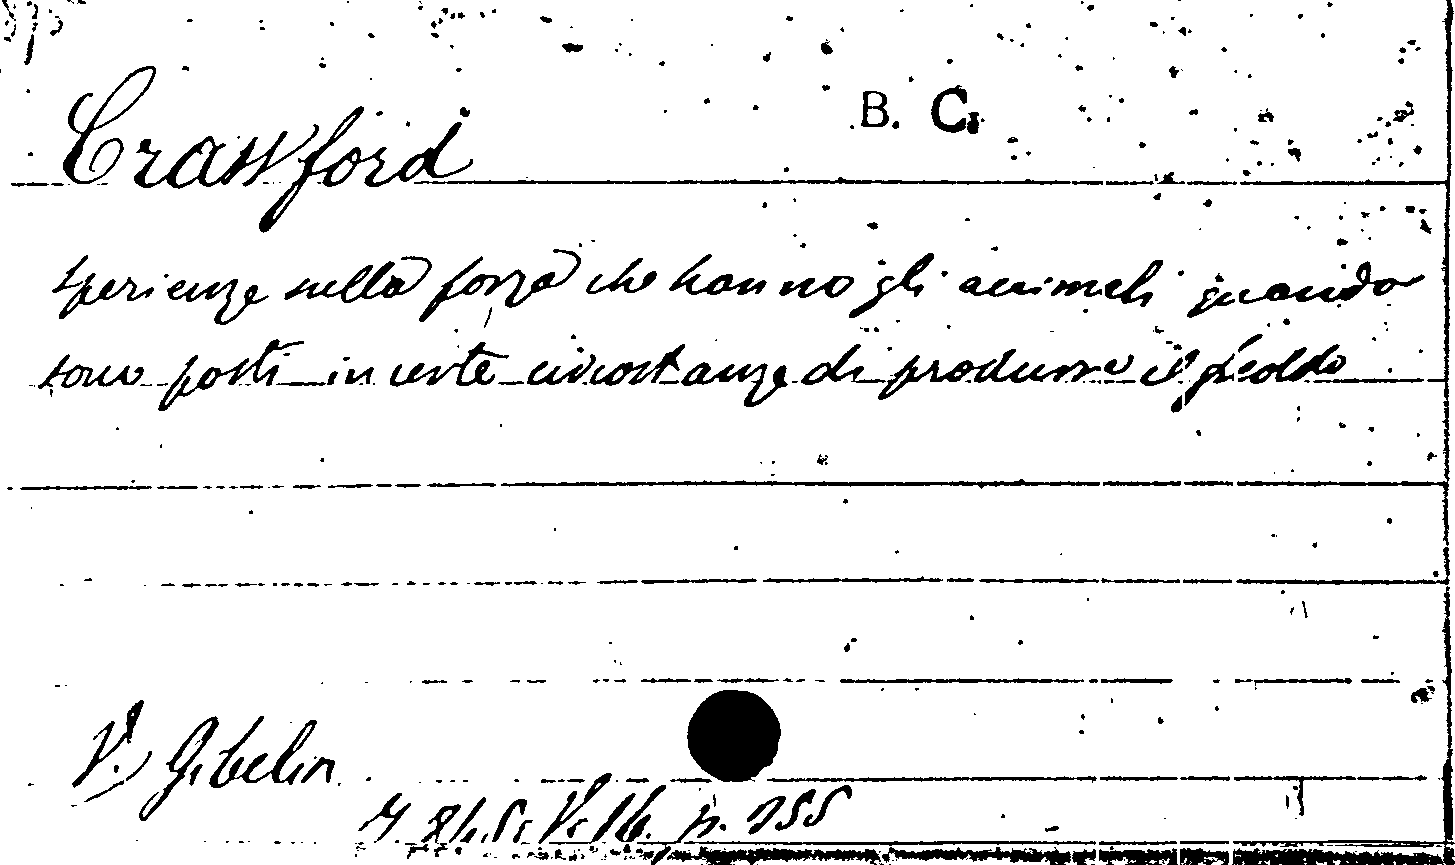 Crawford B. C.
sperienze sulla forza che hanno gli animali quando
sono posti in certe circostanze di produrre il freddo
V. Gibelin
V. 16. p. 255